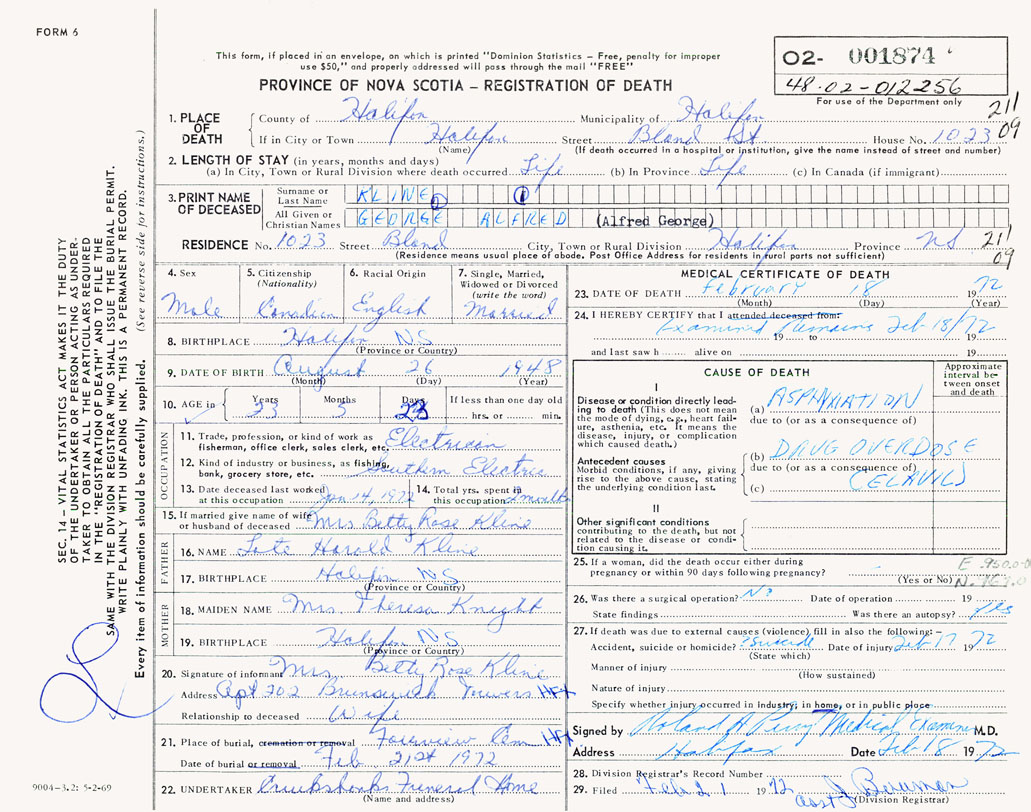 FORM 6
This form, if placed in an envelope, on which is printed "Dominion Statistics – Free, penalty for improper
use $50," and properly addressed will pass through the mail "FREE"
PROVINCE OF NOVA SCOTIA – REGISTRATION OF DEATH
O2- 001874
48-02-012256
For use of the Department only
211
09
1. PLACE OF DEATH
County of Halifax Municipality of Halifax
If in City or Town Halifax Street Bland St. House No. 1023
(Name) (If death occurred in a hospital or institution, give the name instead of street and number)
2. LENGTH OF STAY (in years, months and days)
(a) In City, Town or Rural Division where death occurred Life (b) In Province Life (c) In Canada (if immigrant)
3. PRINT NAME OF DECEASED
Surname or Last Name KLINE
All Given or Christian Names GEORGE ALFRED (Alfred George)
RESIDENCE No. 1023 Street Bland City, Town or Rural Division Halifax Province NS 211
(Residence means usual place of abode. Post Office Address for residents in rural parts not sufficient) 09
4. Sex
Male
5. Citizenship
(Nationality)
Canadian
6. Racial Origin
English
7. Single, Married,
Widowed or Divorced
(write the word)
Married
8. BIRTHPLACE Halifax NS
(Province or Country)
9. DATE OF BIRTH August 26 1948
(Month) (Day) (Year)
10. AGE in Years Months Days If less than one day old
23 5 23 hrs. or min.
OCCUPATION
11. Trade, profession, or kind of work as Electrician
fisherman, office clerk, sales clerk, etc.
12. Kind of industry or business, as fishing, Southern Electric
bank, grocery store, etc.
13. Date deceased last worked at this occupation Jan 14, 1972
14. Total yrs. spent in this occupation months
15. If married give name of wife Mrs Betty Rose Kline
or husband of deceased
FATHER
16. NAME Late Harold Kline
17. BIRTHPLACE Halifax NS
(Province or Country)
MOTHER
18. MAIDEN NAME Mrs. Theresa Knight
19. BIRTHPLACE Halifax NS
(Province or Country)
20. Signature of informant Mrs. Betty Rose Kline
Address Apt 702 Brunswick Towers HFX
Relationship to deceased Wife
21. Place of burial, cremation or removal Fairview Cem HFX
Date of burial or removal Feb 21st 1972
22. UNDERTAKER Cruikshanks Funeral Home
(Name and address)
MEDICAL CERTIFICATE OF DEATH
23. DATE OF DEATH February 18 1972
(Month) (Day) (Year)
24. I HEREBY CERTIFY that I attended deceased from:
Examined Remains Feb 18/72
19 to 19
and last saw h alive on 19
CAUSE OF DEATH
Approximate
interval be-
tween onset
and death
I
Disease or condition directly lead-
ing to death (This does not mean
the mode of dying, e.g., heart fail-
ure, asthenia, etc. It means the
disease, injury, or complication
which caused death.)
(a) ASPHYXIATION
due to (or as a consequence of)
Antecedent causes
Morbid conditions, if any, giving
rise to the above cause, stating
the underlying condition last.
(b) DRUG OVERDOSE
due to (or as a consequence of)
(c) (ELAVIL)
II
Other significant conditions
contributing to the death, but not
related to the disease or condi-
tion causing it.
25. If a woman, did the death occur either during
pregnancy or within 90 days following pregnancy?
(Yes or No)
26. Was there a surgical operation? No Date of operation 19
State findings Was there an autopsy? Yes
27. If death was due to external causes (violence) fill in also the following: –
Accident, suicide or homicide? ?Suicide Date of injury Feb 17 1972
(State which)
Manner of injury
(How sustained)
Nature of injury
Specify whether injury occurred in industry, in home, or in public place
Signed by Roland A Perry Medical Examiner M.D.
Address Halifax Date Feb 18 1972
28. Division Registrar's Record Number
29. Filed Feb 21 1972
(Division Registrar)
SEC. 14 – VITAL STATISTICS ACT MAKES IT THE DUTY
OF THE UNDERTAKER OR PERSON ACTING AS UNDER-
TAKER TO OBTAIN ALL THE PARTICULARS REQUIRED
IN THE "REGISTRATION OF DEATH" AND TO FILE THE
SAME WITH THE DIVISION REGISTRAR WHO SHALL ISSUE THE BURIAL PERMIT.
WRITE PLAINLY WITH UNFADING INK. THIS IS A PERMANENT RECORD.
Every item of information should be carefully supplied. (See reverse side for instructions.)
9004-3.2: 5-2-69